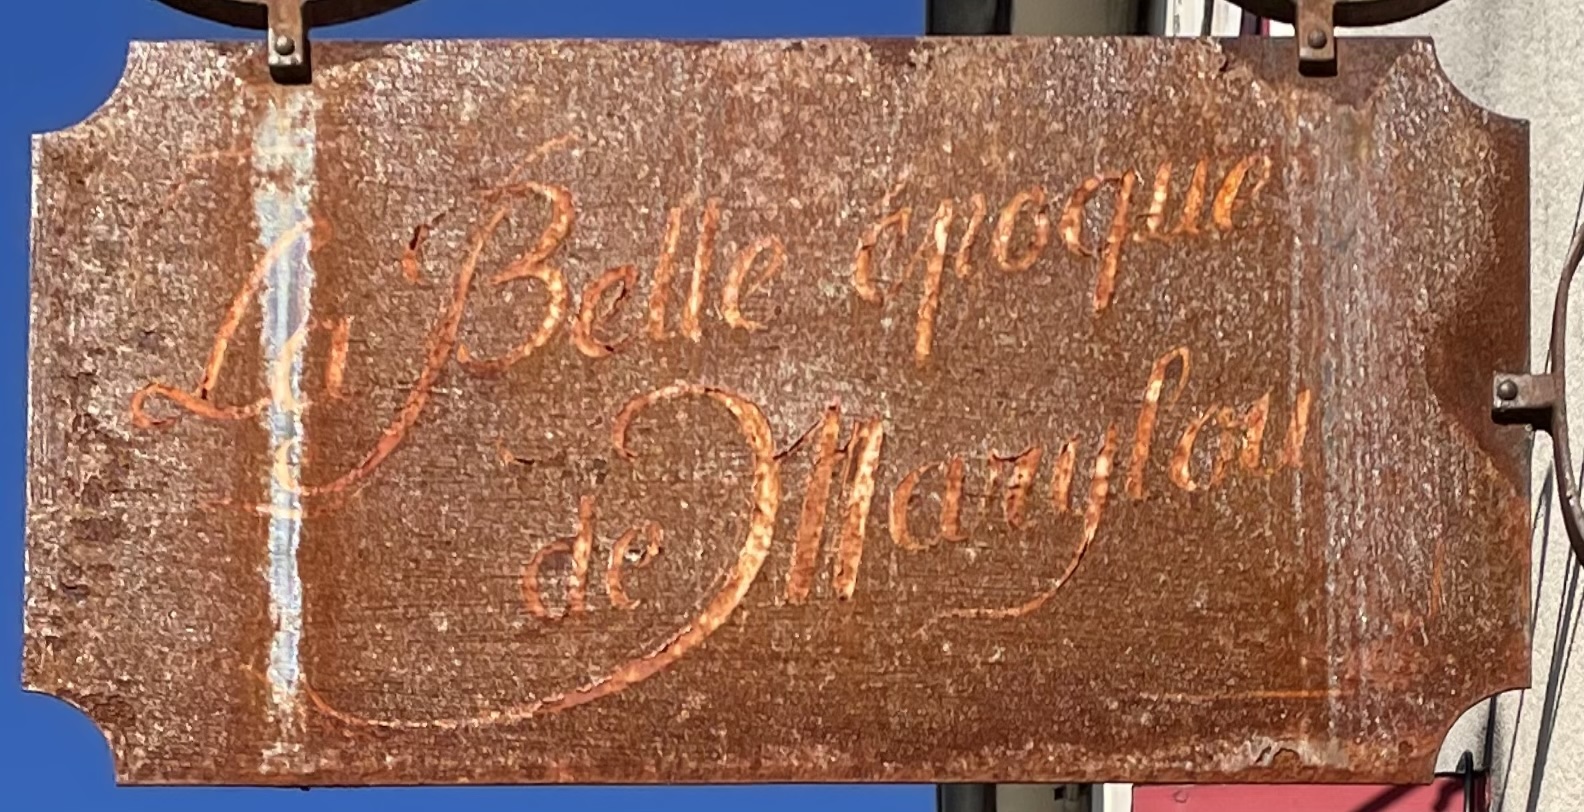 La Belle époque
de Marylou